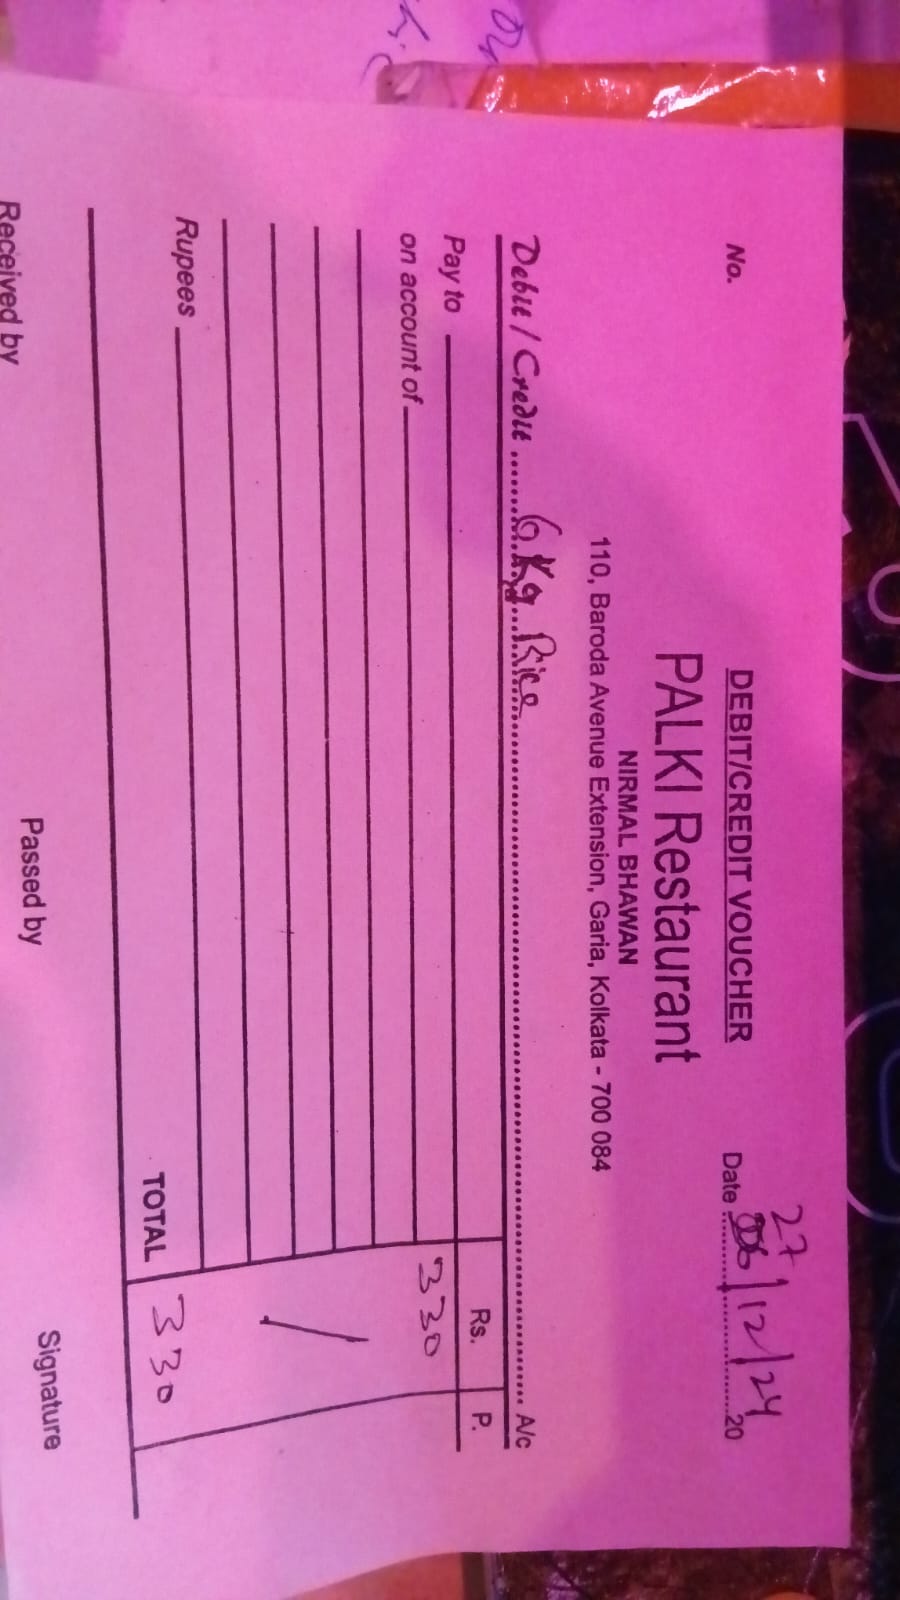 DEBIT/CREDIT VOUCHER
27
No. Date /12/24 20
PALKI Restaurant
NIRMAL BHAWAN
110, Baroda Avenue Extension, Garia, Kolkata - 700 084
Debit / Credit 6 Kg Rice A/c
Pay to Rs. P.
on account of 330
/
Rupees
TOTAL 330
Received by Passed by Signature